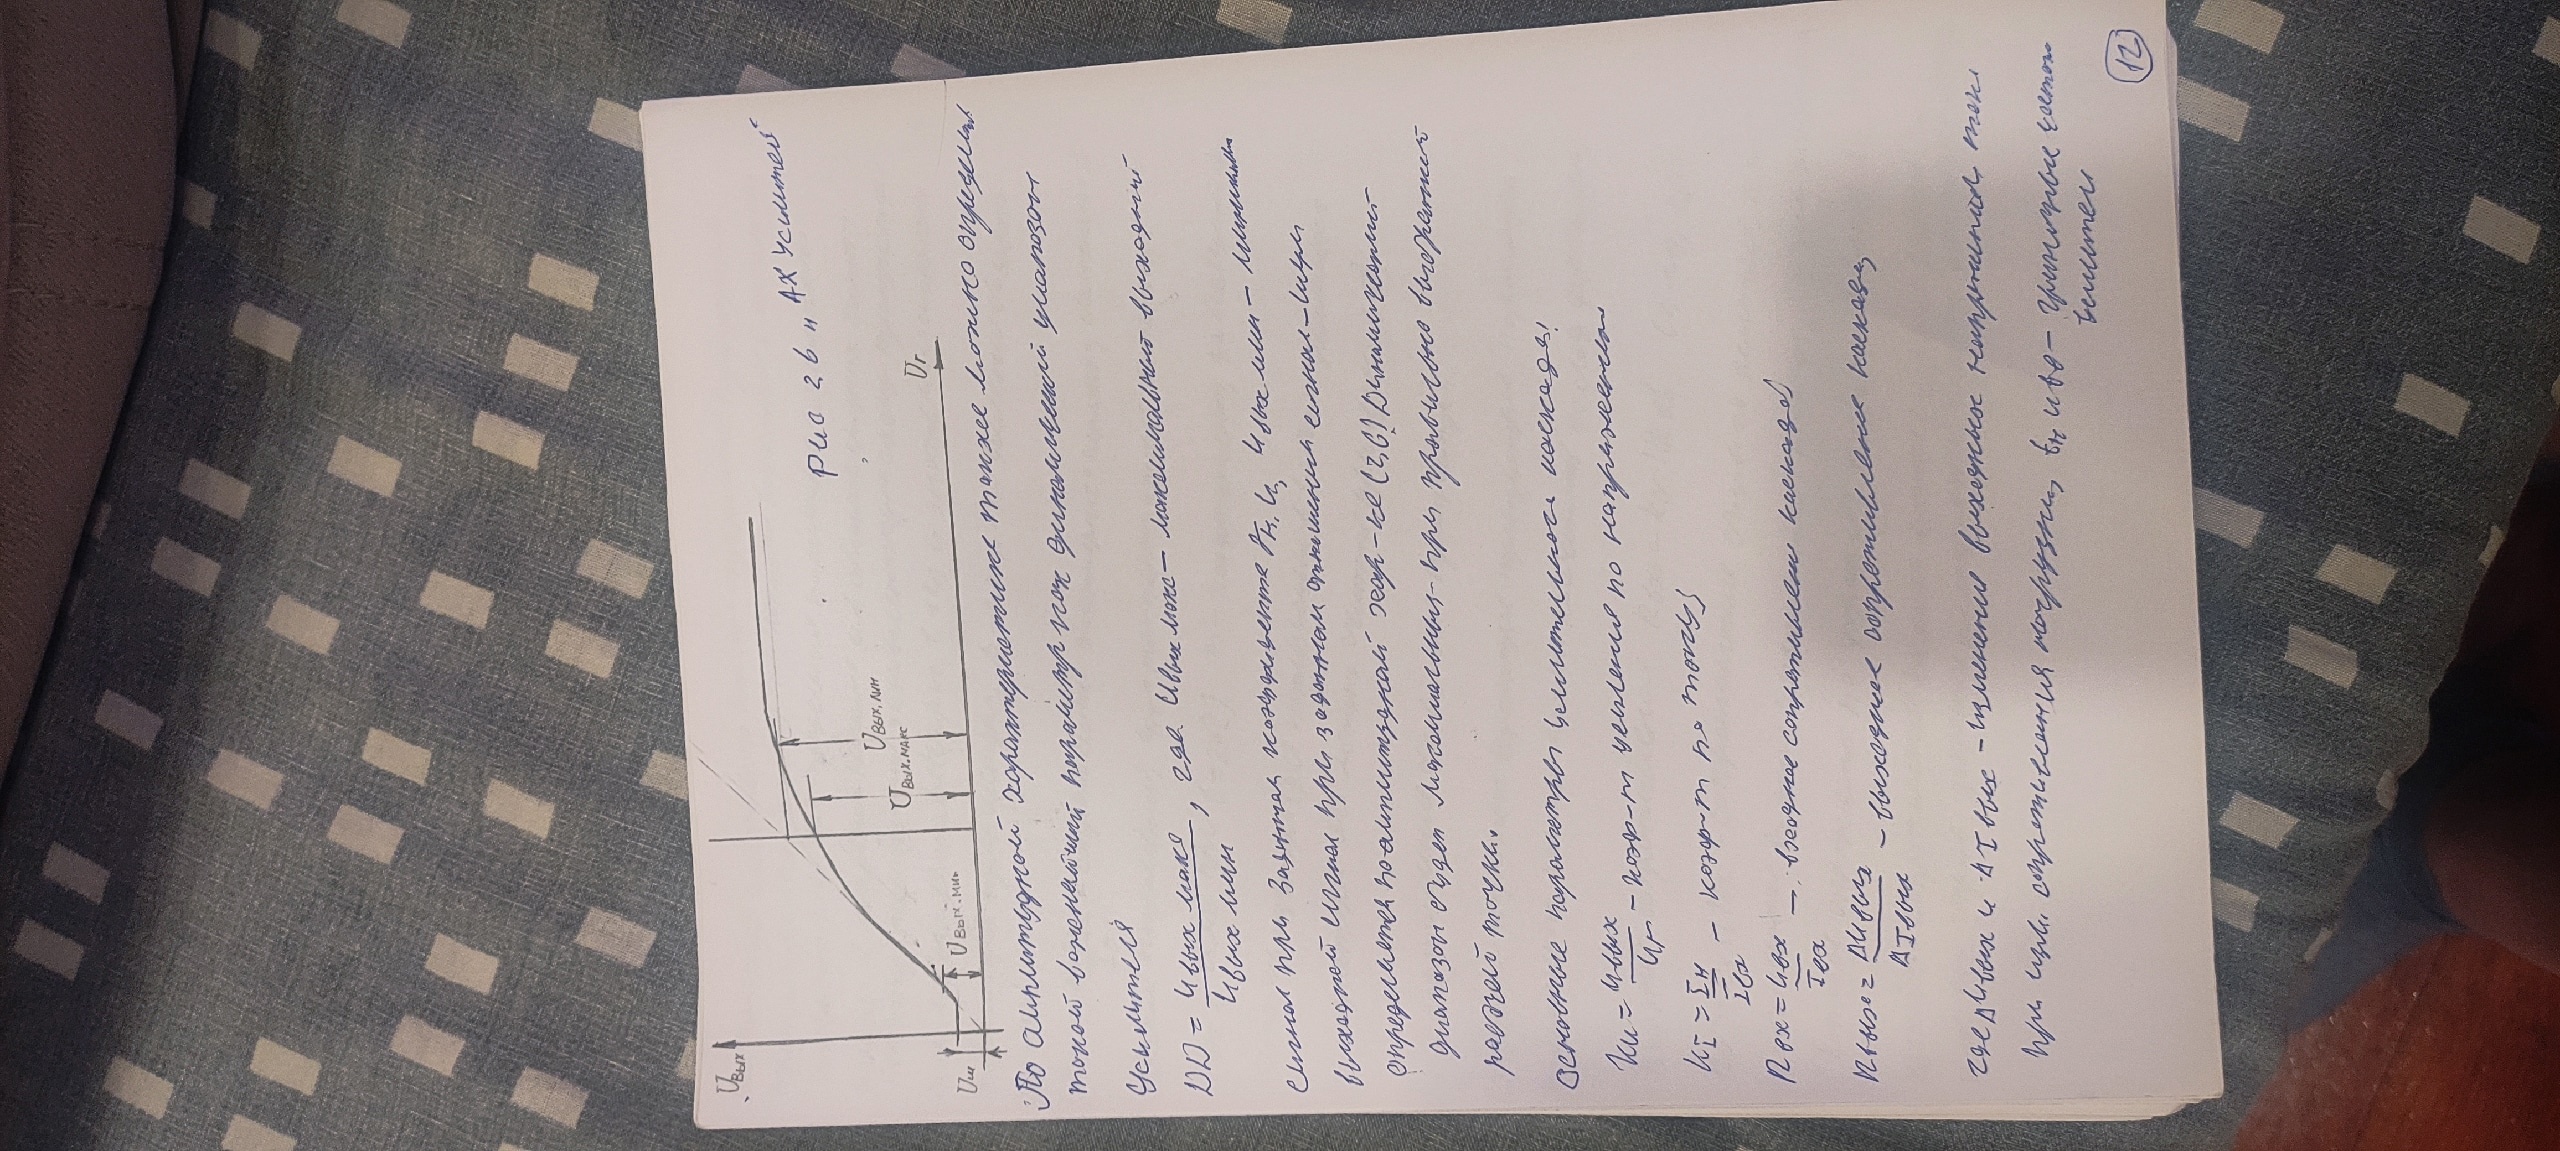 Uвых
Рис 2в „АХ усилител“
Uвых.лин
Uвых.макс
Uвых.мин
Uш
Uг
По амплитудной характеристике также можно определи
такой важнейший параметр как динамический диапазон
усилителя
DD = Uвых макс / Uвых мин, где Uвых макс – максимальный выходной
сигнал при заданном коэффициенте Кг, Uвых мин – минимал
выходной сигнал при заданном отношении сигнал–шум
определяется по амплитудной хар-ке (2,в) Динамический
диапазон будет максимальным при правильно выбранной
рабочей точки.
основные параметры усилительного каскада:
Кu = Uвых / Uг – коэф-т усиления по напряжению
КI = Iн / Iвх – коэф-т по току
Rвх = Uвх / Iвх – входное сопротивлен каскада
Rвых = ΔUвых / ΔIвых – выходное сопротивление каскада,
где ΔUвых и ΔIвых – изменение выходных напряжения, ток
при изм. сопротивления нагрузки, и – граничные частоты
усилител
12